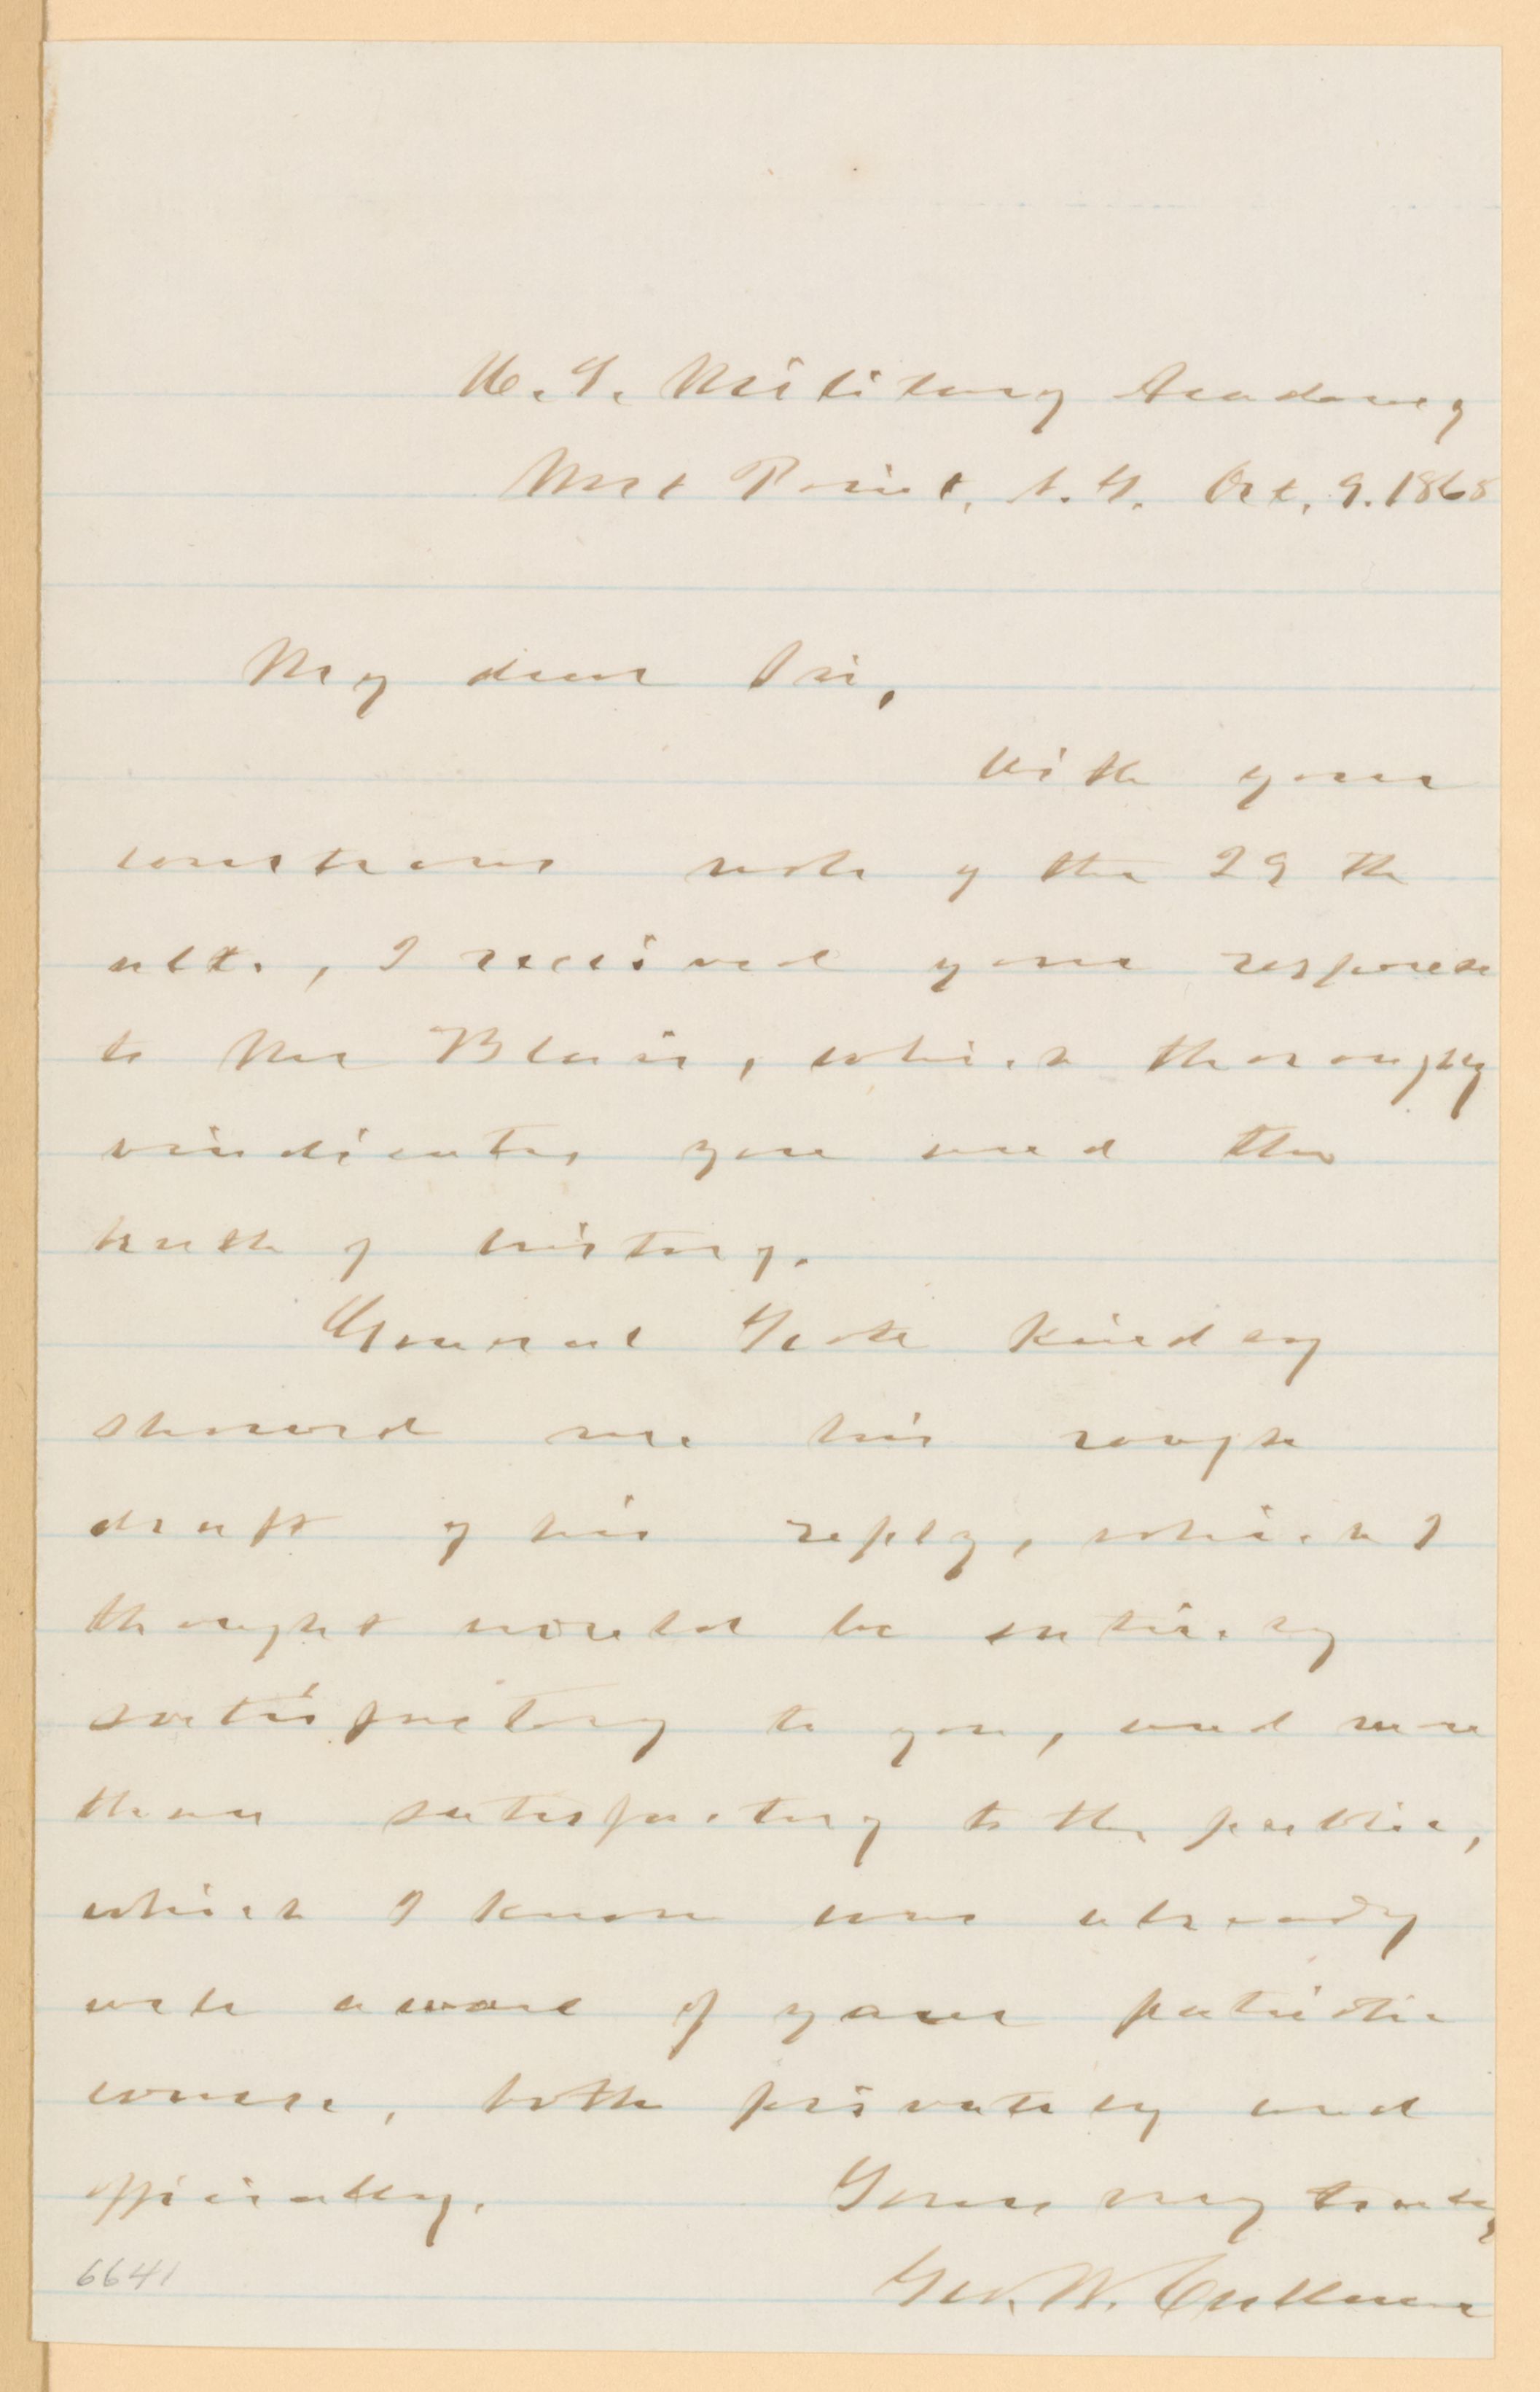 U.S. Military Academy
West Point, N.Y. Oct. 9. 1865
My dear Sir,
With your
courteous note of the 29th
ult., I received your response
to Mr Blair, which thoroughly
vindicates you and the
truth of history.
General Scott kindly
showed me his rough
draft of his reply, which I
thought would be entirely
satisfactory to you, and more
than satisfactory to the public,
which I know was already
well aware of your patriotic
course, both privately and
officially. Yours very truly
Geo. W. Cullum
6641